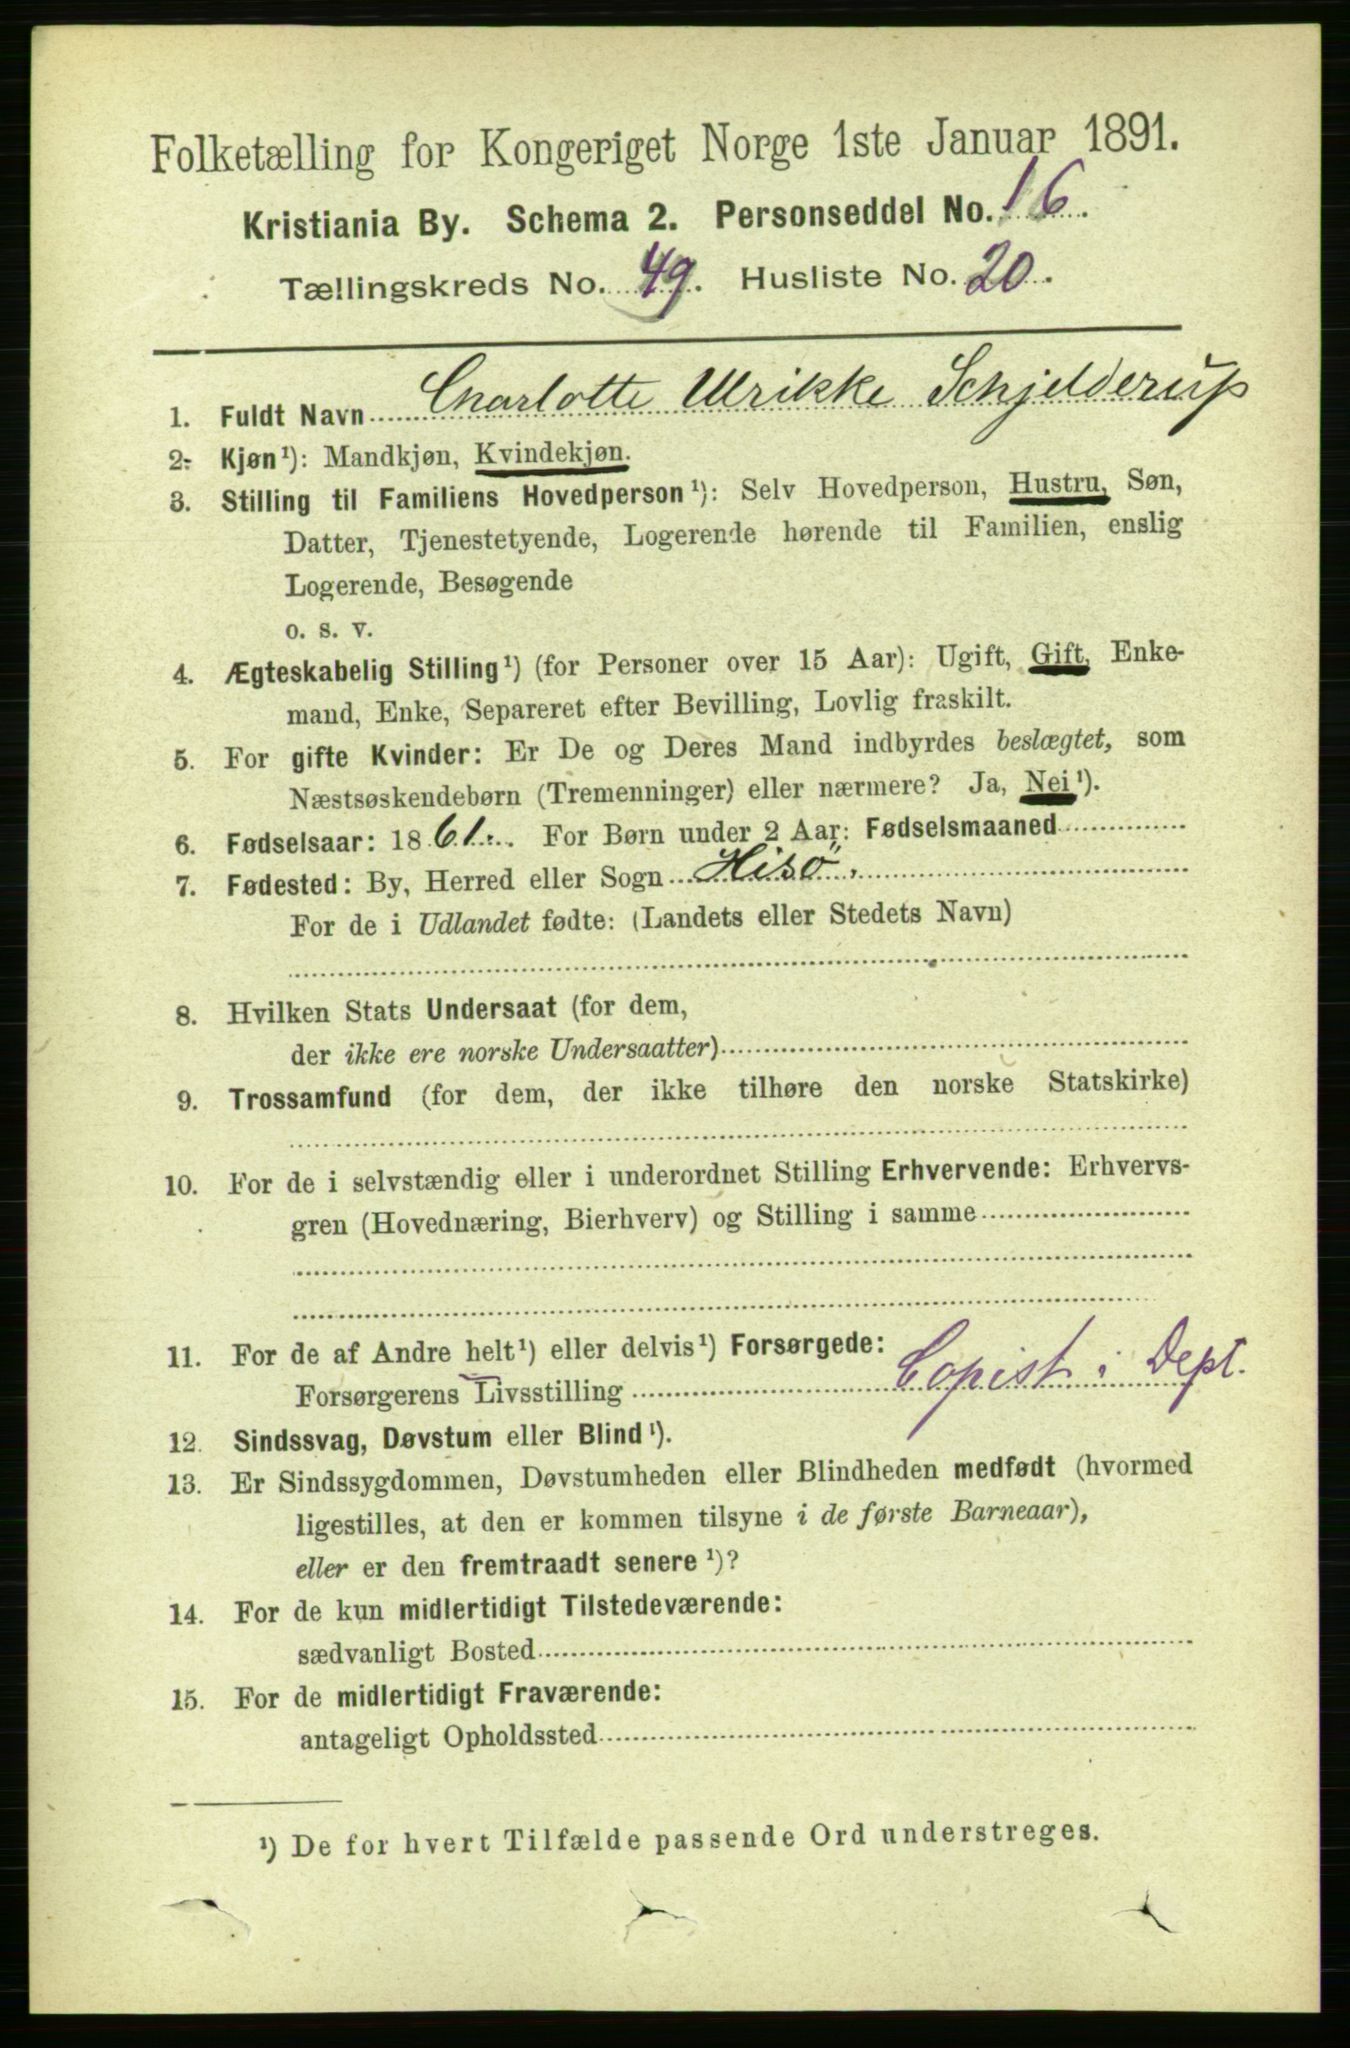 Folketælling for Kongeriget Norge 1ste Januar 1891.
Kristiania By. Schema 2. Personseddel No. 16.
Tællingskreds No. 49. Husliste No. 20.
1. Fuldt Navn Charlotte Ulrikke Schjelderup
2. Kjøn¹): Mandkjøn, Kvindekjøn.
3. Stilling til Familiens Hovedperson¹): Selv Hovedperson, Hustru, Søn,
Datter, Tjenestetyende, Logerende hørende til Familien, enslig
Logerende, Besøgende
o. s. v.
4. Ægteskabelig Stilling¹) (for Personer over 15 Aar): Ugift, Gift, Enke-
mand, Enke, Separeret efter Bevilling, Lovlig fraskilt.
5. For gifte Kvinder: Er De og Deres Mand indbyrdes beslægtet, som
Næstsøskendebørn (Tremenninger) eller nærmere? Ja, Nei¹).
6. Fødselsaar: 1861. For Børn under 2 Aar: Fødselsmaaned
7. Fødested: By, Herred eller Sogn Hisö.
For de i Udlandet fødte: (Landets eller Stedets Navn)
8. Hvilken Stats Undersaat (for dem,
der ikke ere norske Undersaatter)
9. Trossamfund (for dem, der ikke tilhøre den norske Statskirke)
10. For de i selvstændig eller i underordnet Stilling Erhvervende: Erhvervs-
gren (Hovednæring, Bierhverv) og Stilling i samme
11. For de af Andre helt¹) eller delvis¹) Forsørgede:
Forsørgerens Livsstilling Copist i Dept.
12. Sindssvag, Døvstum eller Blind¹).
13. Er Sindssygdommen, Døvstumheden eller Blindheden medfødt (hvormed
ligestilles, at den er kommen tilsyne i de første Barneaar),
eller er den fremtraadt senere¹)?
14. For de kun midlertidigt Tilstedeværende:
sædvanligt Bosted
15. For de midlertidigt Fraværende:
antageligt Opholdssted
¹) De for hvert Tilfælde passende Ord understreges.